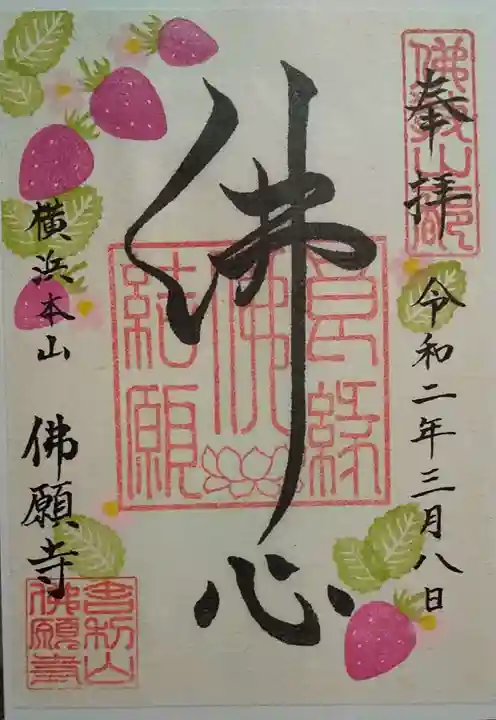 奉拝
令和二年三月八日
佛心
良縁
佛
結願
横浜本山 佛願寺
舎利山
佛願寺